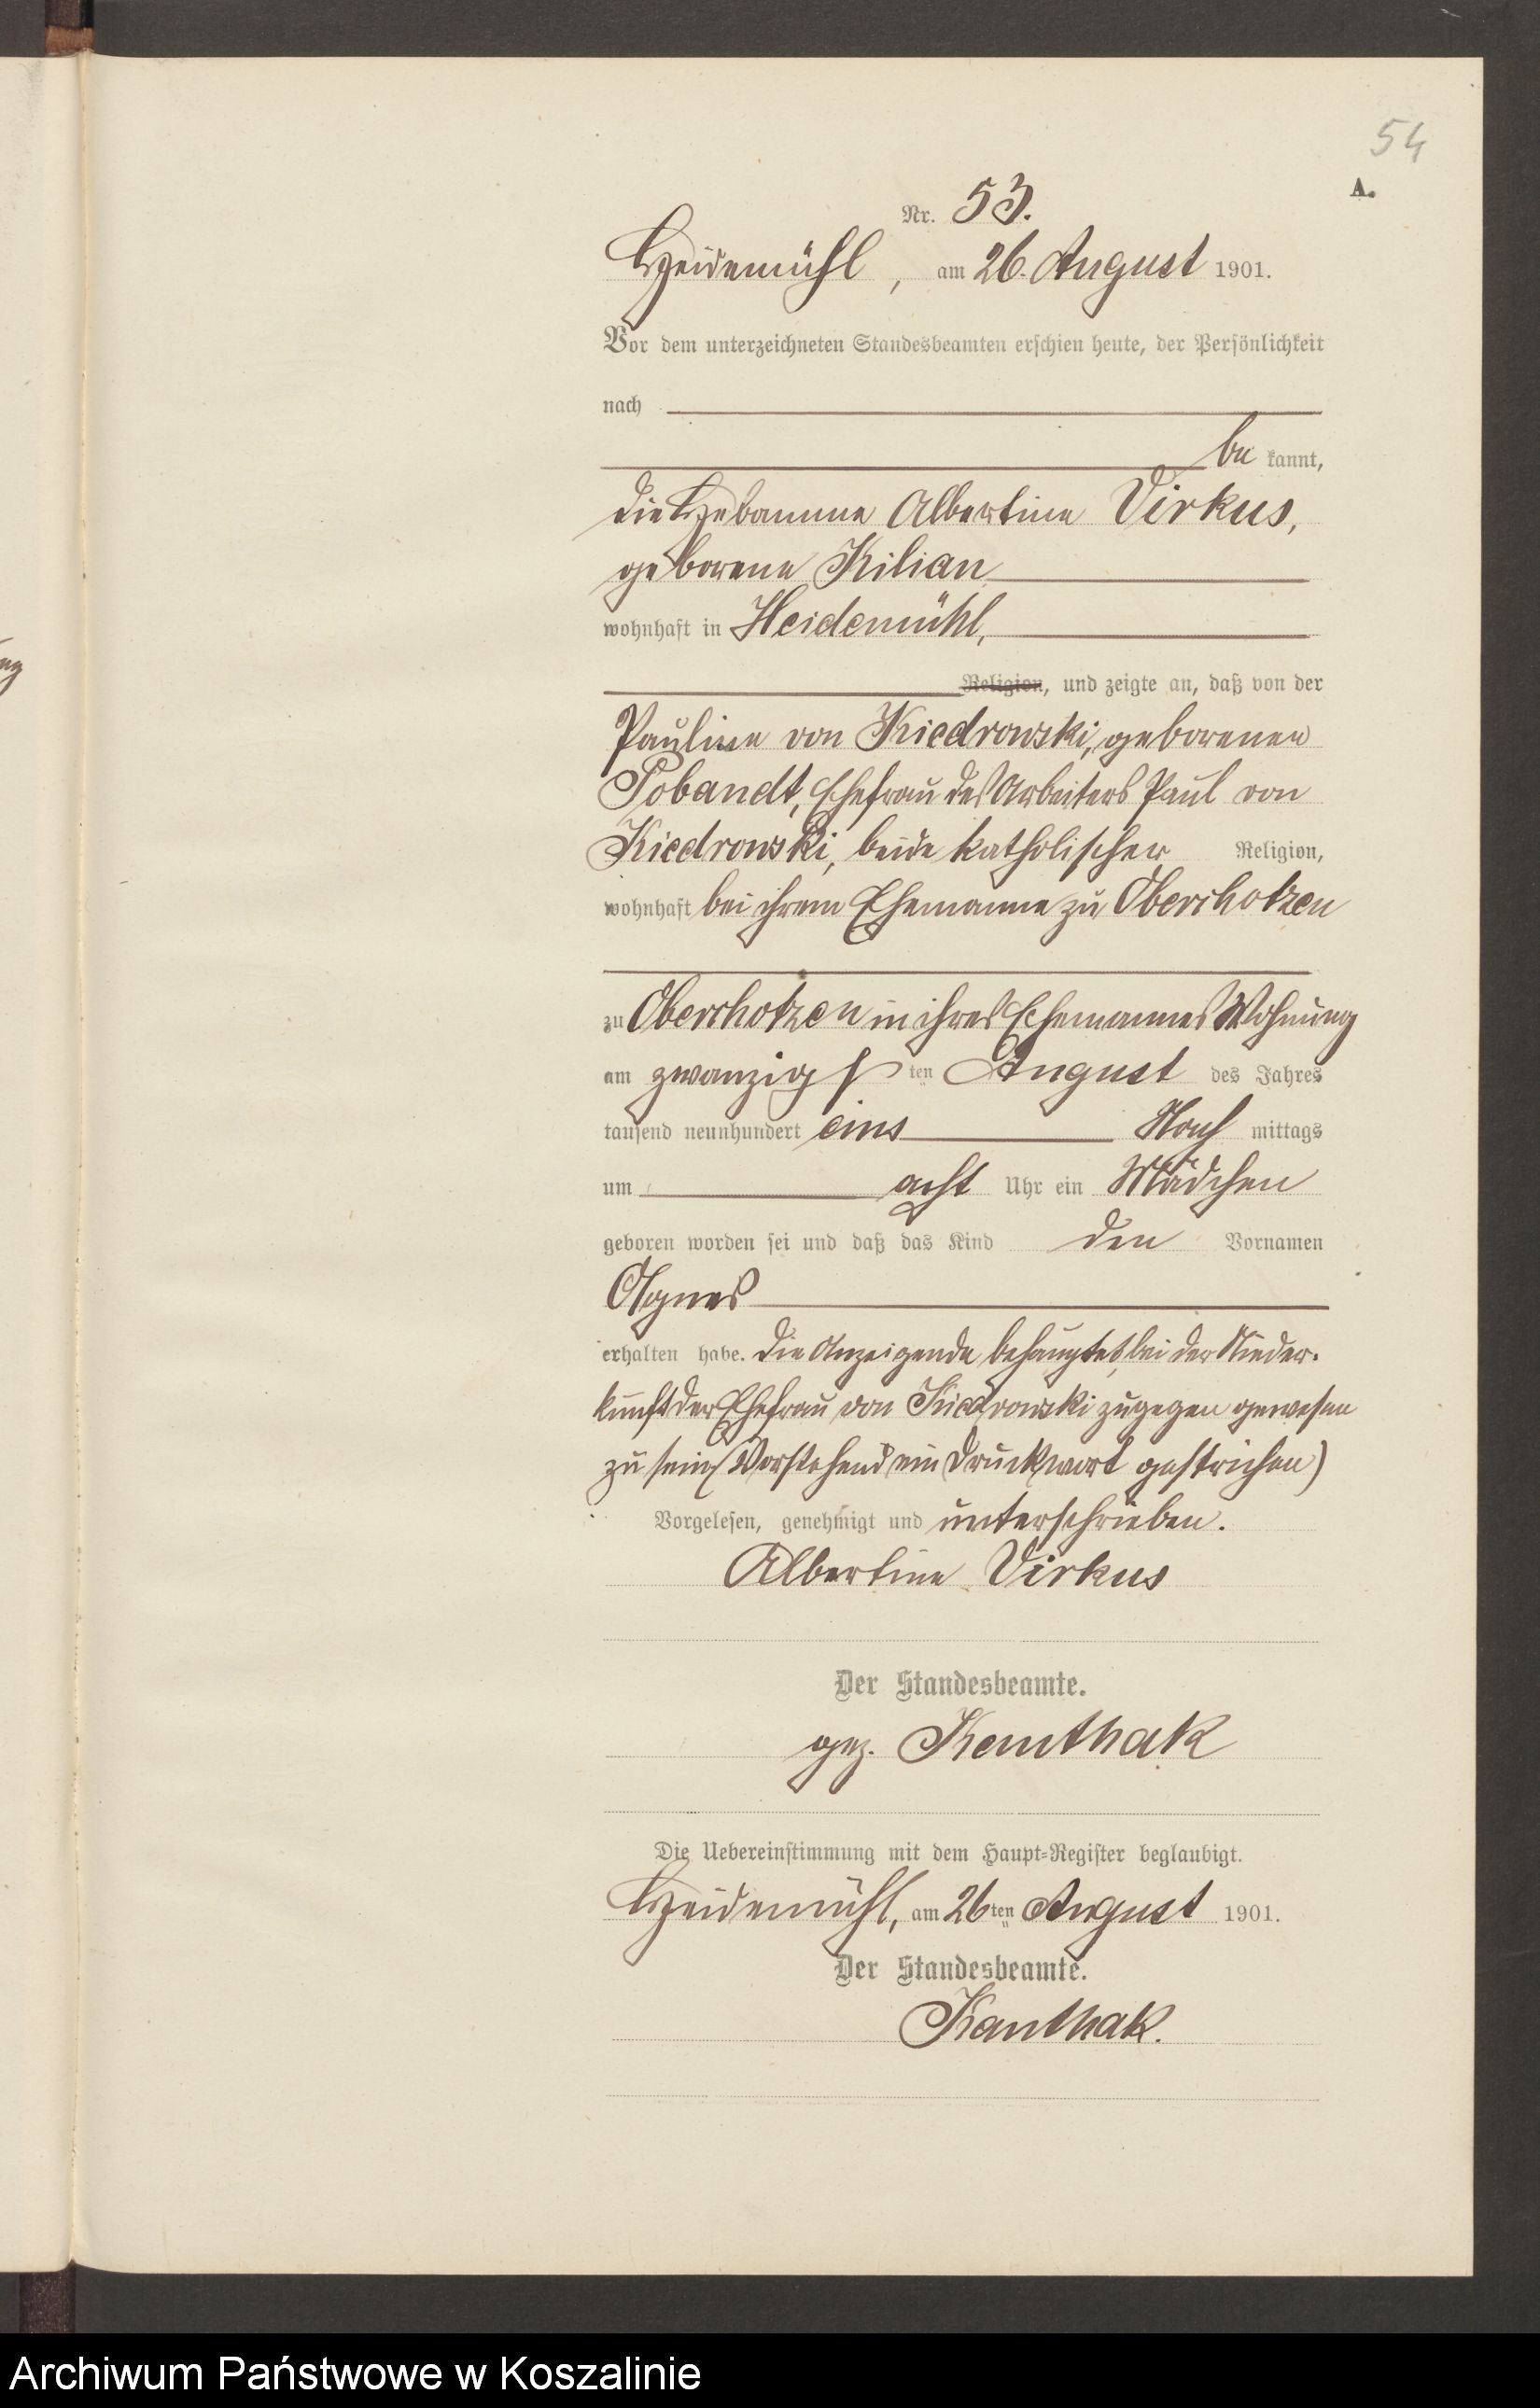 54
A.
Nr. 53.
Heidemühl, am 26. August 1901.
Vor dem unterzeichneten Standesbeamten erschien heute, der Persönlichkeit
nach
be kannt,
die Hebamme Albertine Virkus,
geborene Kilian
wohnhaft in Heidemühl,
Religion, und zeigte an, daß von der
Pauline von Kiedrowski, geborenen
Pobandt, Ehefrau des Arbeiters Paul von
Kiedrowski, beide katholischer Religion,
wohnhaft bei ihrem Ehemanne zu Oberchotzen
zu Oberchotzen in ihres Ehemannes Wohnung
am zwanzigsten August des Jahres
tausend neunhundert eins Nach mittags
um acht Uhr ein Mädchen
geboren worden sei und daß das Kind den Vornamen
Agnes
erhalten habe. Die Anzeigende behauptet, bei der Nieder-
kunft der Ehefrau von Kiedrowski zugegen gewesen
zu sein (Vorstehend ein Druckwort gestrichen)
Vorgelesen, genehmigt und unterschrieben.
Albertine Virkus
Der Standesbeamte.
gez. Kanthak
Die Uebereinstimmung mit dem Haupt-Register beglaubigt.
Heidemühl, am 26ten August 1901.
Der Standesbeamte.
Kanthak.
Archiwum Państwowe w Koszalinie